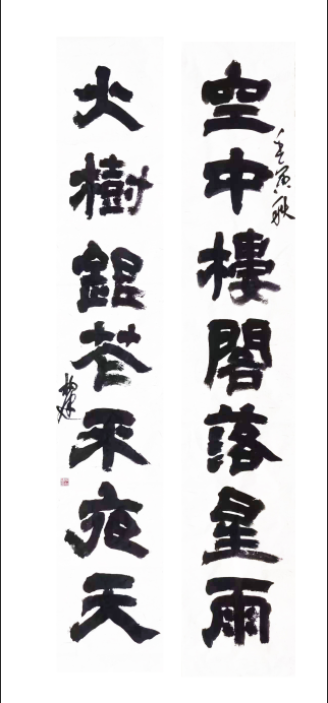 空中樓閣落星雨
壬寅秋
火樹銀花不夜天